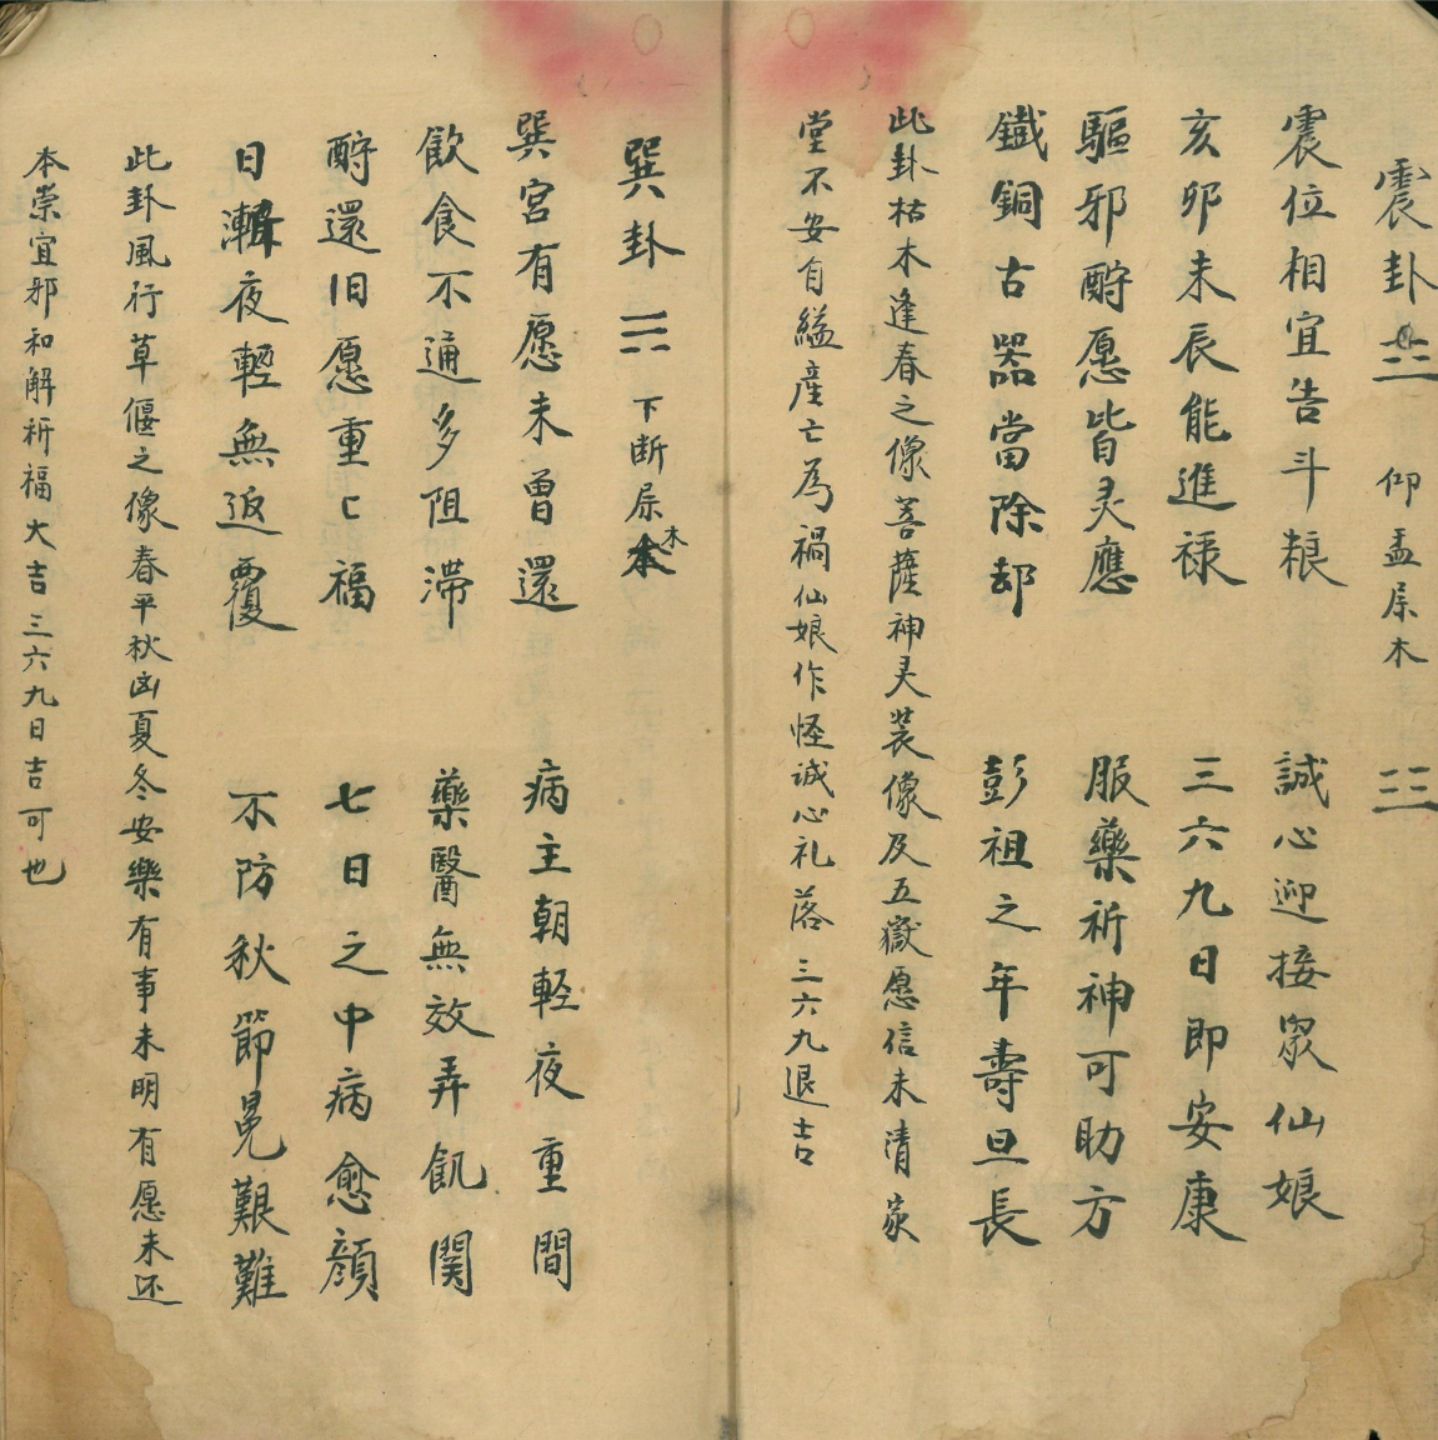 震卦☳ 仰盂屬木 ☳
震位相宜告斗粮 誠心迎接眾仙娘
亥卯未辰能進禄 三六九日即安康
驅邪酧愿皆灵應 服藥祈神可助方
鐵銅古器當除却 彭祖之年壽旦長
此卦枯木逢春之像菩薩神灵装像及五嶽愿信未清家
堂不安自縊産亡為禍仙娘作怪誠心礼落三六九退吉
巽卦☴ 下断屬木
巽宮有愿未曾還 病主朝輕夜重間
飲食不通多阻滯 藥醫無效弄飢関
酧還旧愿重匕福 七日之中病愈顔
日漸夜輕無返覆 不防秋節晃艱難
此卦風行草偃之像春平秋凶夏冬安樂有事未明有愿未还
本祟宜邪和解祈福大吉三六九日吉可也